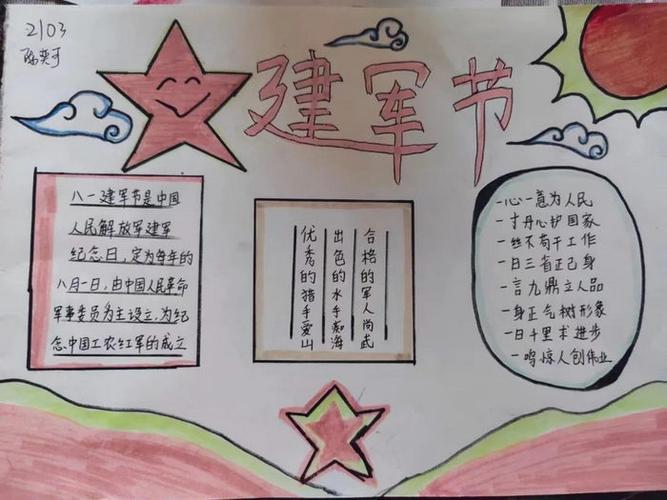 2103
建军节
八一建军节是中国
人民解放军建军
纪念日,定为每年的
八月一日,由中国人民革命
军事委员为主设立,为纪
念中国工农红军的成立
合格的军人尚武
出色的水手痴海
优秀的猎手爱山
一心一意为人民
一寸丹心护国家
一丝不苟干工作
一日三省正己身
一言九鼎立人品
一身正气树形象
一日千里求进步
一鸣惊人创伟业